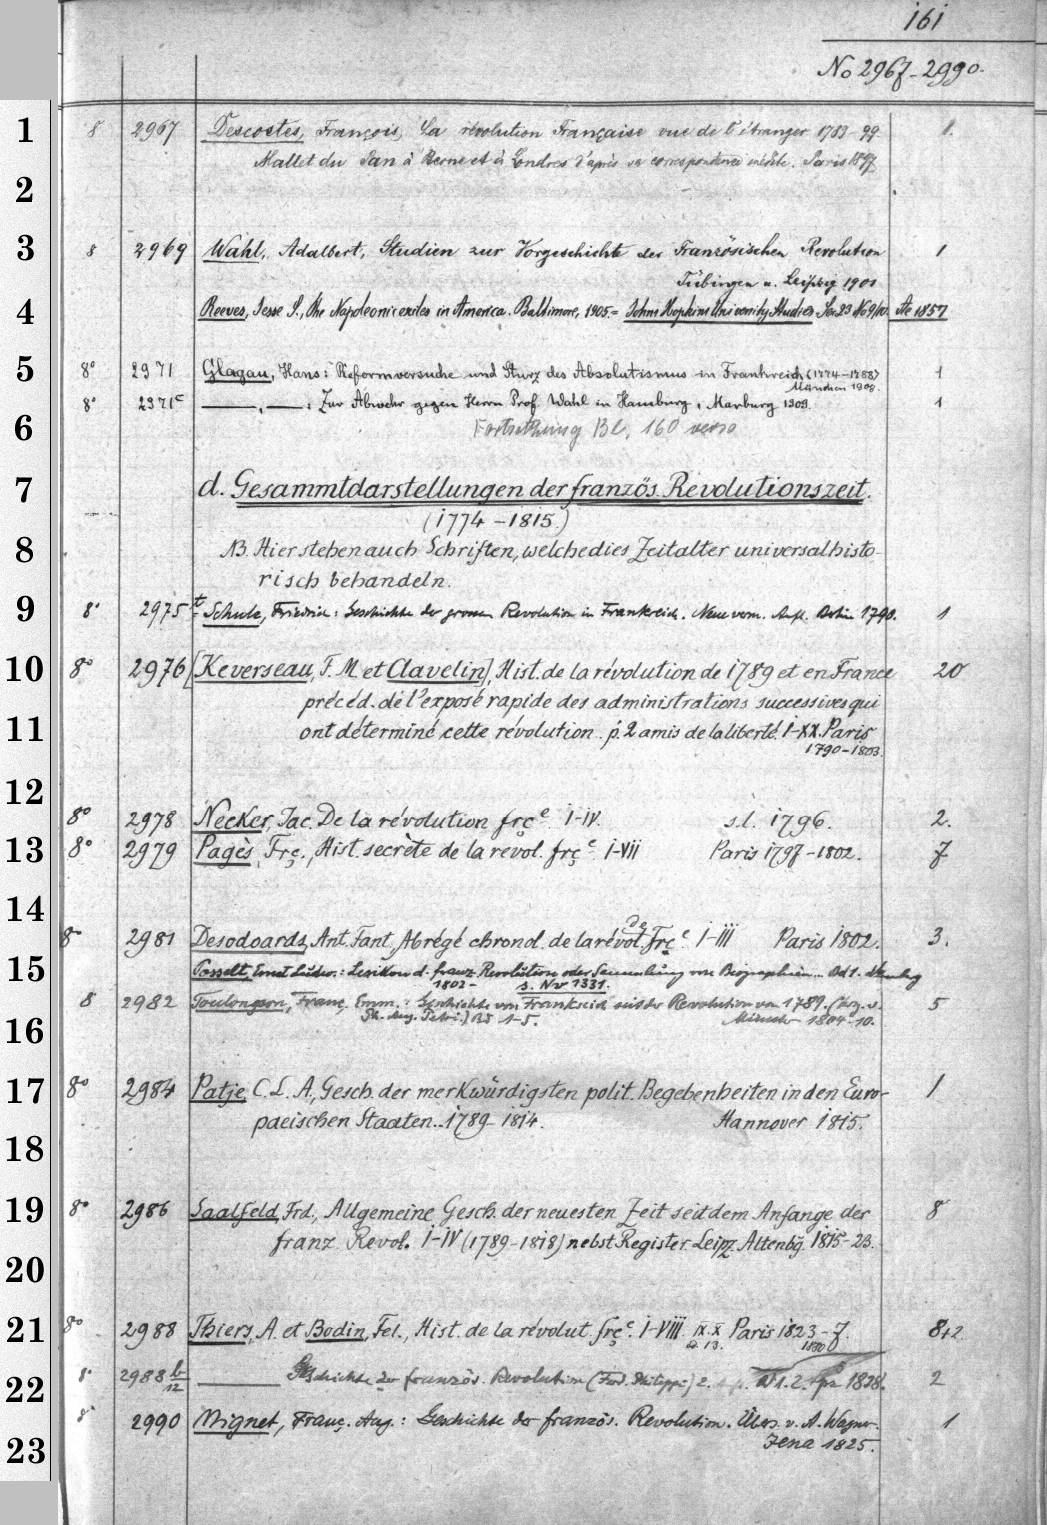 161
No 2967-2990.
1 8 2967 Descostes, François, La révolution Française vue de l'étranger 1789-99. 1.
Mallet du Pan à Berne et à Londres d'après sa correspondance inédite. Paris 1897
2
3 8 2969 Wahl, Adalbert, Studien zur Vorgeschichte der Französischen Revolution 1
Tübingen u. Leipzig 1901
4 Reeves, Jesse S., the Napoleonic exiles in America. Baltimore, 1905. = Johns Hopkins University Studies. Ser. 23 No 9/10. Ae 1857
5 8° 2971 Glagau, Hans: Reformversuche und Sturz des Absolutismus in Frankreich (1774-1788) 1
München 1908.
8° 2971c ——, —: Zur Abwehr gegen Herrn Prof. Wahl in Hamburg, Marburg 1909. 1
6 Fortsetzung Bl. 160 verso
7 d. Gesammtdarstellungen der französ. Revolutionszeit.
(1774-1815.)
8 NB. Hier stehen auch Schriften, welche dies Zeitalter universalhisto-
risch behandeln.
9 8° 2975t Schulz, Friedrich: Geschichte der grossen Revolution in Frankreich. Neue verm. Aufl. Berlin 1790. 1
10 8° 2976 [Keverseau, F. M et Clavelin], Hist. de la révolution de 1789 et en France 20
précéd. de l'exposé rapide des administrations successives qui
11 ont déterminé cette révolution. p. 2 amis de la liberté. I-XX. Paris
1790-1803.
12
8° 2978 Necker, Jac. De la révolution frçe I-IV. s.l. 1796. 2.
13 8° 2979 Pagès, Frç., Hist. secrète de la revol. frçe I-VII Paris 1797-1802. 7
14
8° 2981 Desodoards, Ant. Fant, Abrégé chronol. de la révol. de Frçe I-III Paris 1802. 3.
15 Posselt, Ernst Ludw.: Lexikon d. franz. Revolution oder Sammlung von Biographien... Bd 1. Nürnberg
1802- s. No 1331.
8 2982 Toulongeon, Franç. Emm.: Geschichte von Frankreich seit der Revolution von 1789. (hrg. v. 5
16 Ph. Aug. Petri.) Bd 1-5. Münster 1804-10.
17 8° 2984 Patje, C. L. A, Gesch. der merkwürdigsten polit. Begebenheiten in den Euro- 1
paeischen Staaten.. 1789-1814. Hannover 1815.
18
19 8° 2986 Saalfeld, Frd., Allgemeine Gesch. der neuesten Zeit seit dem Anfange der 8
franz. Revol. I-IV (1789-1818) nebst Register. Leipz. Altenbg. 1815-23.
20
21 8° 2988 Thiers, A. et Bodin, Fel., Hist. de la révolut. frçe I-VIII. IX. X Paris 1823-7. 8+2
1830
22 8° 2988 b/12 —— Geschichte der französ. Revolution (Ferd. Philippi) 2. Bd 1. 2. 1828. 2
8° 2990 Mignet, Franç. Aug.: Geschichte der französ. Revolution. Übers. v. A. Wagner. 1
23 Jena 1825.